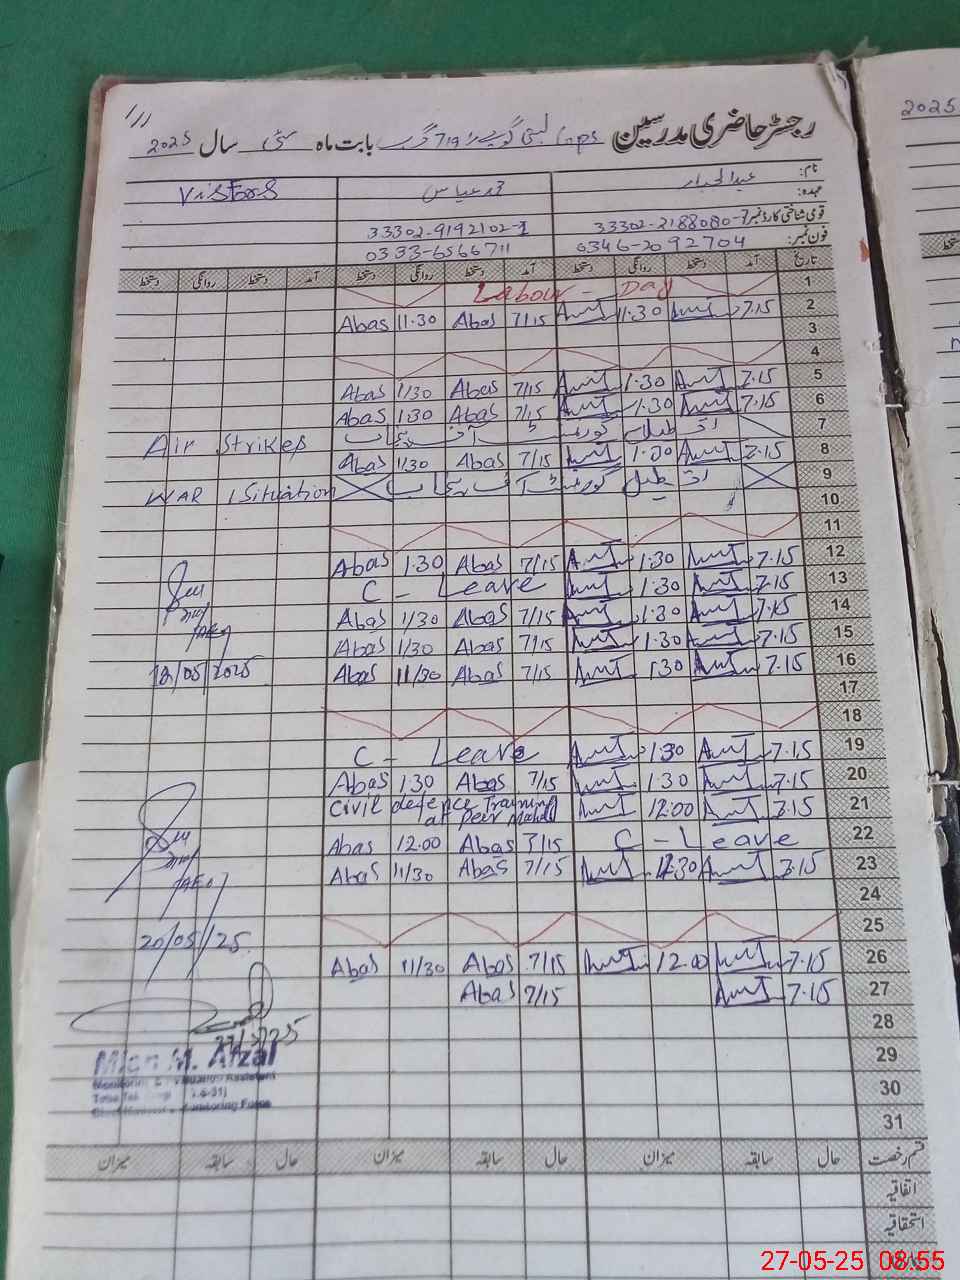 رجسٹر حاضری مدرسین Gps بستی گوبے را 719 گ ب بابت ماہ مئی سال 2025
2025
نام: عبدالجبار محمد عباس Visitors
عہدہ:
قومی شناختی کارڈ نمبر: 33302-2188080-7 33302-9192102-1
فون نمبر: 0346-2092704 0333-6566711
تاریخ آمد دستخط روانگی دستخط آمد دستخط روانگی دستخط آمد دستخط روانگی دستخط
1 Labour - Day
2 7.15 11.30 7/15 Abas 11.30 Abas
3
4
5 7.15 1.30 7/15 Abas 1/30 Abas
6 7.15 1.30 7/15 Abas 1.30 Abas
7 تعطیل گورنمنٹ آف پنجاب Air Strikes
8 7.15 1.00 7/15 Abas 1/30 Abas
9 تعطیل گورنمنٹ آف پنجاب WAR Situation
10
11
12 7.15 1.30 7/15 Abas 1.30 Abas
13 7.15 1.30 C - Leave
14 7.15 1.30 7/15 Abas 1/30 Abas
15 7.15 1.30 7/15 Abas 1/30 Abas
16 7.15 1.30 7/15 Abas 11/30 Abas
(AEO)
12/05/2025
17
18
19 7.15 1.30 C - Leave
20 7.15 1.30 7/15 Abas 1.30 Abas
21 7.15 12.00 Civil defence Training at peer mahal
22 C - Leave 7/15 Abas 12.00 Abas
23 7.15 11.30 7/15 Abas 11/30 Abas
(AEO)
24
25
20/05/25
26 7.15 12.00 7/15 Abas 11/30 Abas
27 7.15 7/15 Abas
28
29
30
31
Mian M. Afzal
Monitoring & Evaluation Assistant
Monitoring Force
قسم رخصت حال سابقہ میزان حال سابقہ میزان حال سابقہ میزان
اتفاقیہ
استحقاقیہ
27-05-25 08:55